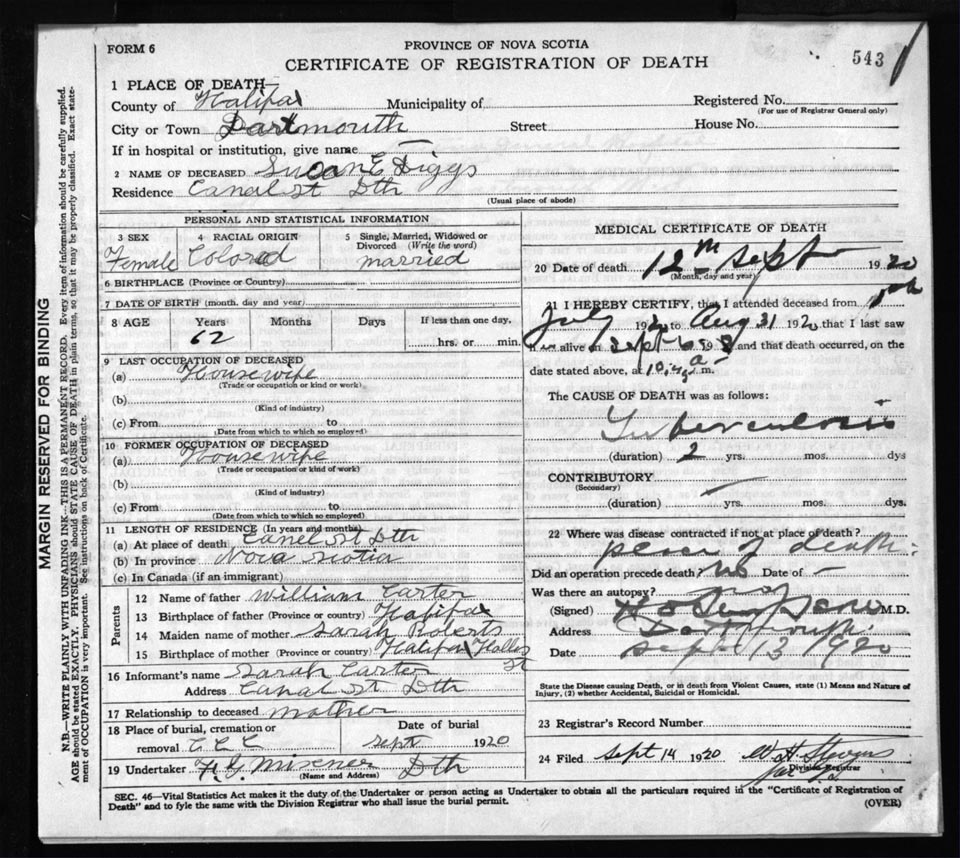 FORM 6
PROVINCE OF NOVA SCOTIA
543
CERTIFICATE OF REGISTRATION OF DEATH
1 PLACE OF DEATH
County of Halifax Municipality of Registered No.
(For use of Registrar General only)
City or Town Dartmouth Street House No.
If in hospital or institution, give name —
2 NAME OF DECEASED Susan E Diggs
Residence Canal St Dth
(Usual place of abode)
PERSONAL AND STATISTICAL INFORMATION
3 SEX 4 RACIAL ORIGIN 5 Single, Married, Widowed or
Divorced (Write the word)
Female Colored married
6 BIRTHPLACE (Province or Country)
7 DATE OF BIRTH (month, day and year)
8 AGE Years Months Days If less than one day,
62 hrs. or min.
9 LAST OCCUPATION OF DECEASED
(a) Housewife
(Trade or occupation or kind or work)
(b)
(Kind of industry)
(c) From to
(Date from which to which so employed)
10 FORMER OCCUPATION OF DECEASED
(a) Housewife
(Trade or occupation or kind of work)
(b)
(Kind of industry)
(c) From to
(Date from which to which so employed)
11 LENGTH OF RESIDENCE (In years and months)
(a) At place of death Canel St Dth
(b) In province Nova Scotia
(c) In Canada (if an immigrant)
Parents
12 Name of father William Carter
13 Birthplace of father (Province or country) Halifax
14 Maiden name of mother Sarah Roberts
15 Birthplace of mother (Province or country) Halifax
16 Informant's name Sarah Carter
Address Canal St Dth
17 Relationship to deceased mother
18 Place of burial, cremation or Date of burial
removal C C C Sept 1920
19 Undertaker Misener Dth
(Name and Address)
MEDICAL CERTIFICATE OF DEATH
20 Date of death 12th Sept 1920
(Month, day and year)
21 I HEREBY CERTIFY, that I attended deceased from
July 1920 to Aug 31 1920 that I last saw
h alive on Sept 19 and that death occurred, on the
date stated above, at 10 a m.
The CAUSE OF DEATH was as follows:
Tuberculosis
(duration) 2 yrs. mos. dys
CONTRIBUTORY
(Secondary)
(duration) — yrs. mos. dys.
22 Where was disease contracted if not at place of death?
place of death.
Did an operation precede death? No Date of —
Was there an autopsy? no
(Signed) M.D.
Address Dartmouth
Date Sept 13 1920
State the Disease causing Death, or in death from Violent Causes, state (1) Means and Nature of
Injury, (2) whether Accidental, Suicidal or Homicidal.
23 Registrar's Record Number
24 Filed Sept 14 1920
Division Registrar
SEC. 46—Vital Statistics Act makes it the duty of the Undertaker or person acting as Undertaker to obtain all the particulars required in the "Certificate of Registration of
Death" and to fyle the same with the Division Registrar who shall issue the burial permit.
(OVER)
MARGIN RESERVED FOR BINDING
N.B.—WRITE PLAINLY WITH UNFADING INK—THIS IS A PERMANENT RECORD. Every item of information should be carefully supplied.
AGE should be stated EXACTLY. PHYSICIANS should STATE CAUSE OF DEATH in plain terms, so that it may be properly classified. Exact state-
ment of OCCUPATION is very important. See instructions on back of Certificate.